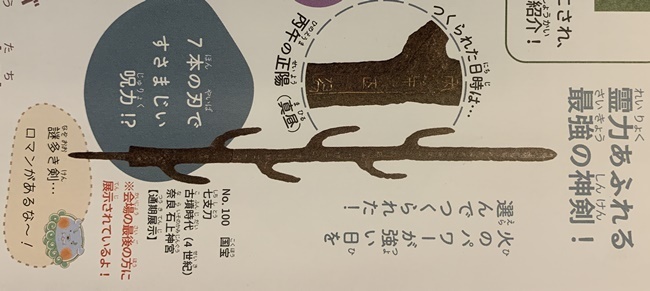 にされ、
紹介！
霊力あふれる
最強の神剣！
火のパワーが強い日を
選んでつくられた！
つくられた日時は…
丙午の正陽（真昼）
7本の刃で
すさまじい
呪力!?
No.100　国宝
七支刀
古墳時代（4世紀）
奈良・石上神宮
【通期展示】
※会場の最後の方に
展示されているよ！
謎多き剣…
ロマンがあるな～！
たち。